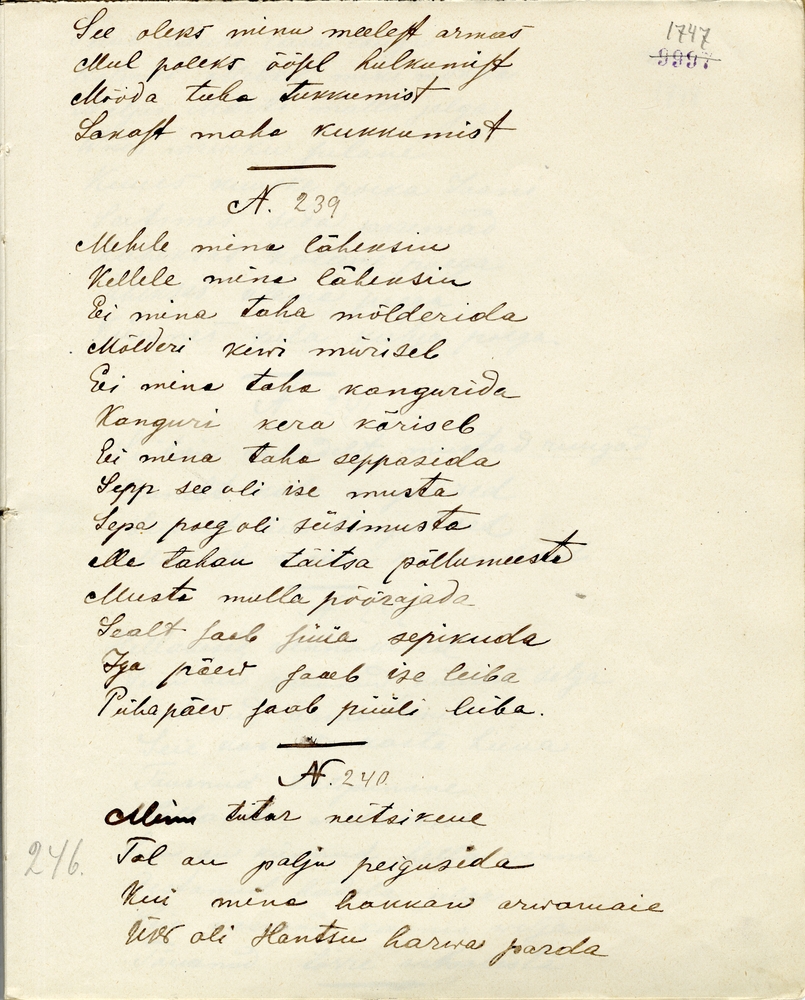 See oleks minu meelest armas
1747
9997
Mul poleks öösel hulkumist
Mööda tuba tukkumist
Lakast maha kukkumist
N. 239
Mehele mina läheksin
Kellele mina läheksin
Ei mina taha mölderida
Mölderi kiwi müriseb
Ei mina taha kangurida
Kanguri kera köriseb
Ei mina taha seppasida
Sepp see oli ise musta
Sepa poeg oli süsimusta
Ma tahan täitsa põllumeeste
Musta mulla pöörajada
Sealt saab süüa sepikuda
Iga päew saab ise leiba
Pühapäev saab püüli leiba.
N. 240
Minu tütar neitsikene
246.
Tal on palju peigusida
Kui mina hakkan arwamaie
Üks oli Hantsu harwa parda